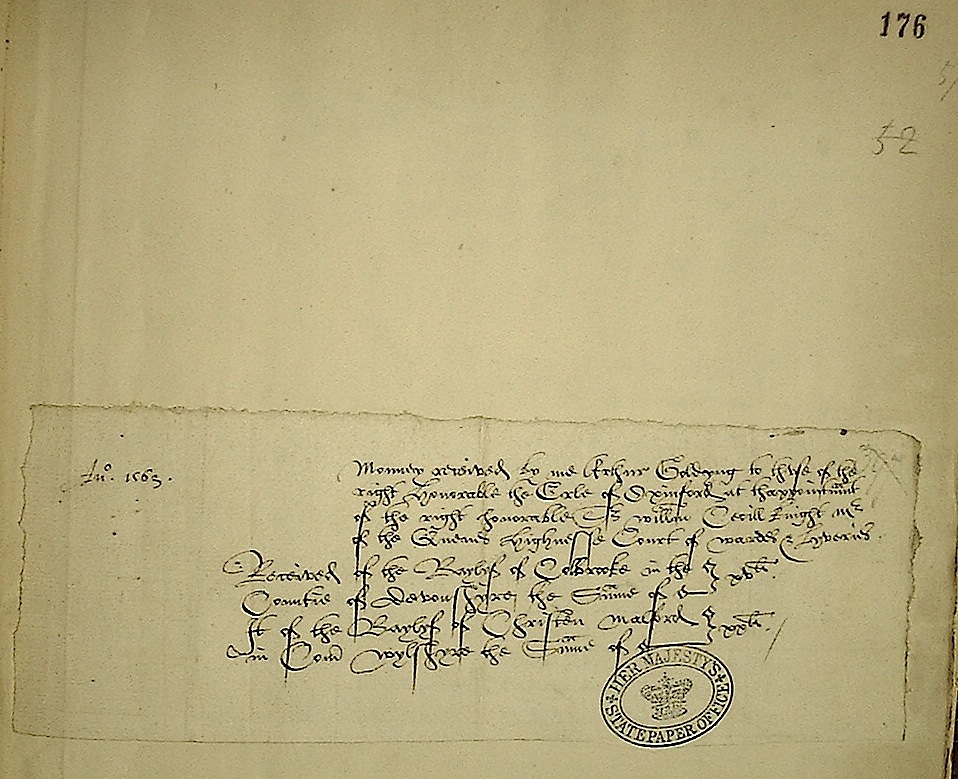 176
52
Ano. 1563.
Monney received by me Arthur Goldyng to thuse of the
right honorable the Erle of Oxinford at thappointment
of the right honorable Sr willm Cecill knight Mr
of the Quenes highnesse Court of wardes & Lyveries.
Received of the Baylyf of Colbrooke in the
Countie of devonshyre the Some of xvli.
It of the Baylyf of Christen malford
in Com wylshyre the Some of xxli.
HER MAJESTY'S
STATE PAPER OFFICE